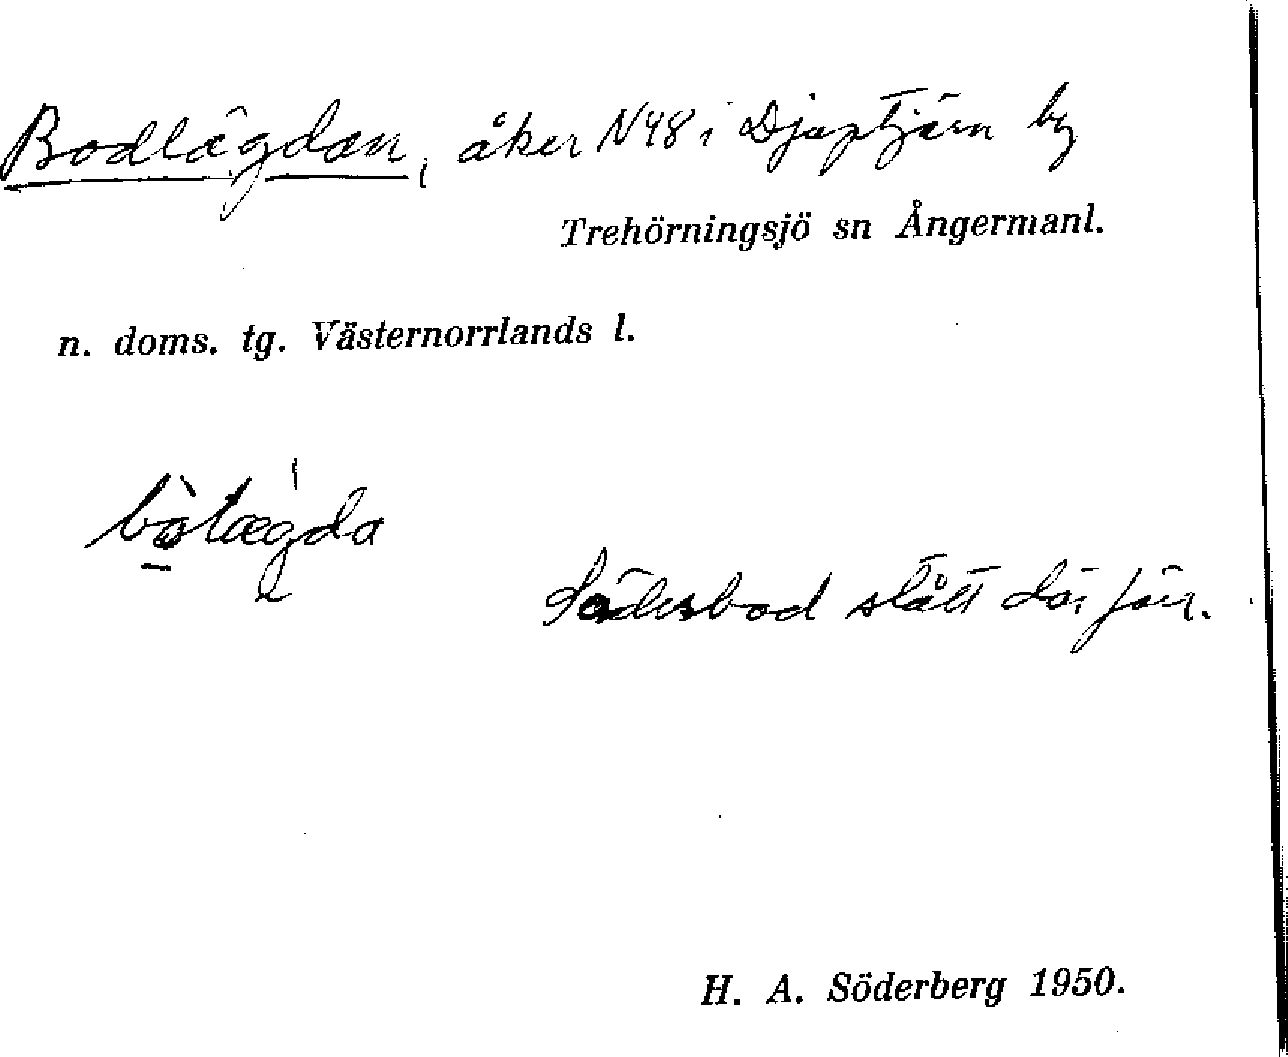 Bodlägdan, åker N48 i Djuptjärn by
Trehörningsjö sn Ångermanl.
n. doms. tg. Västernorrlands l.
Sädesbod stått där förr.
H. A. Söderberg 1950.